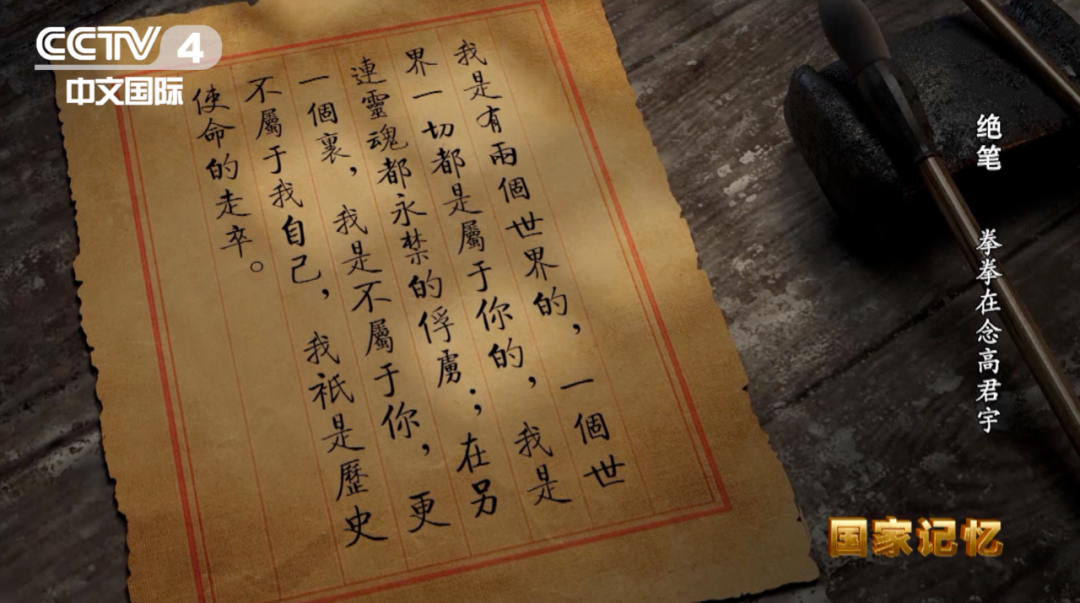 CCTV 4
中文国际
我是有兩個世界的，一個世
界一切都是屬于你的，我是
連靈魂都永禁的俘虜；在另
一個裏，我是不屬于你，更
不屬于我自己，我祇是歷史
使命的走卒。
绝笔 拳拳在念高君宇
国家记忆